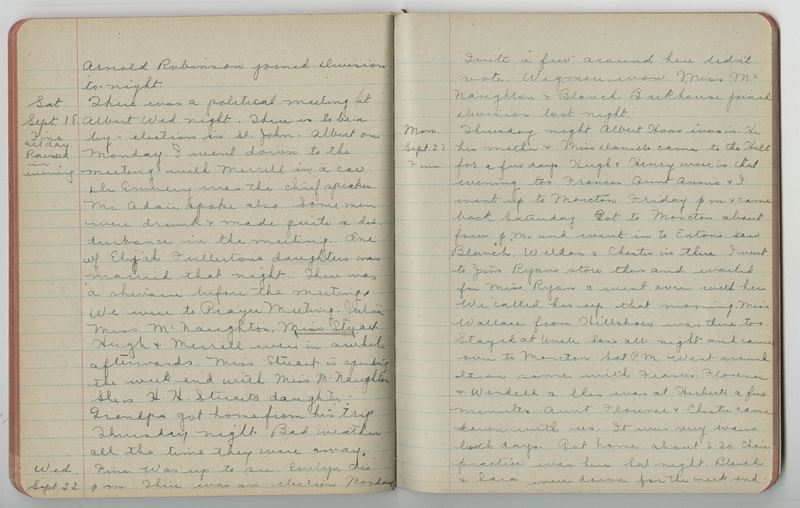 Arnold Robinson joined division
to-night.
Sat. There was a political meeting at
Sept. 18 Albert Wed night. There is to be a
Fine by-election in St. John-Albert on
all day Monday. I went down to the
Rained in evening meeting with Merrill in a car
Dr. Emmery was the chief speaker
Mr. Adair spoke also. Some men
were drunk & made quite a dis-
turbance in the meeting. One
of Elijah Fullerton's daughters was
married that night. There was
a before the meeting.
We were to Prayer Meeting. Julia
Miss McNaughton, Miss Stuart
Hugh & Merrill were in awhile
afterwards. Miss Stuart is spending
the week end with Miss McNaughton
She is H. H. Stuart's daughter.
Grandpa got home from his trip
Thursday night. Bad weather
all the time they were away.
Wed. Fine. Was up to see Evelyn this
Sept. 22 p.m. There was an election Monday
Quite a few around here didn't
vote. won. Miss Mc
Naughton & Blanch Barkhouse joined
division last night.
Mon. Thursday night Albert Haas was in. He
Sept. 27 his mother & Miss Daniels came to the Hill
Fine for a few days. Hugh & Henry were in that
evening too. Frances Aunt Annie & I
went up to Moncton Friday p.m & came
back Saturday. Got to Moncton about
four p.m. and went in to Eaton's. Saw
Blanch, Weldon & Chester in there. I went
to Jim Ryan's store then and waited
for Miss Ryan & went over with her
We called her up that morning. Miss
Wallace from Hillsboro was there too.
Stayed at Uncle all night and came
over to Moncton Sat P.M. Went around
some with Frances. Florence
& Wendell & was at Herbert's a few
minutes. Aunt Florence & Chester came
down with us. It was very warm
both days. Got home about 6.30 Choir
practice was here Sat night. Blanch
& Sara were down for the week end.